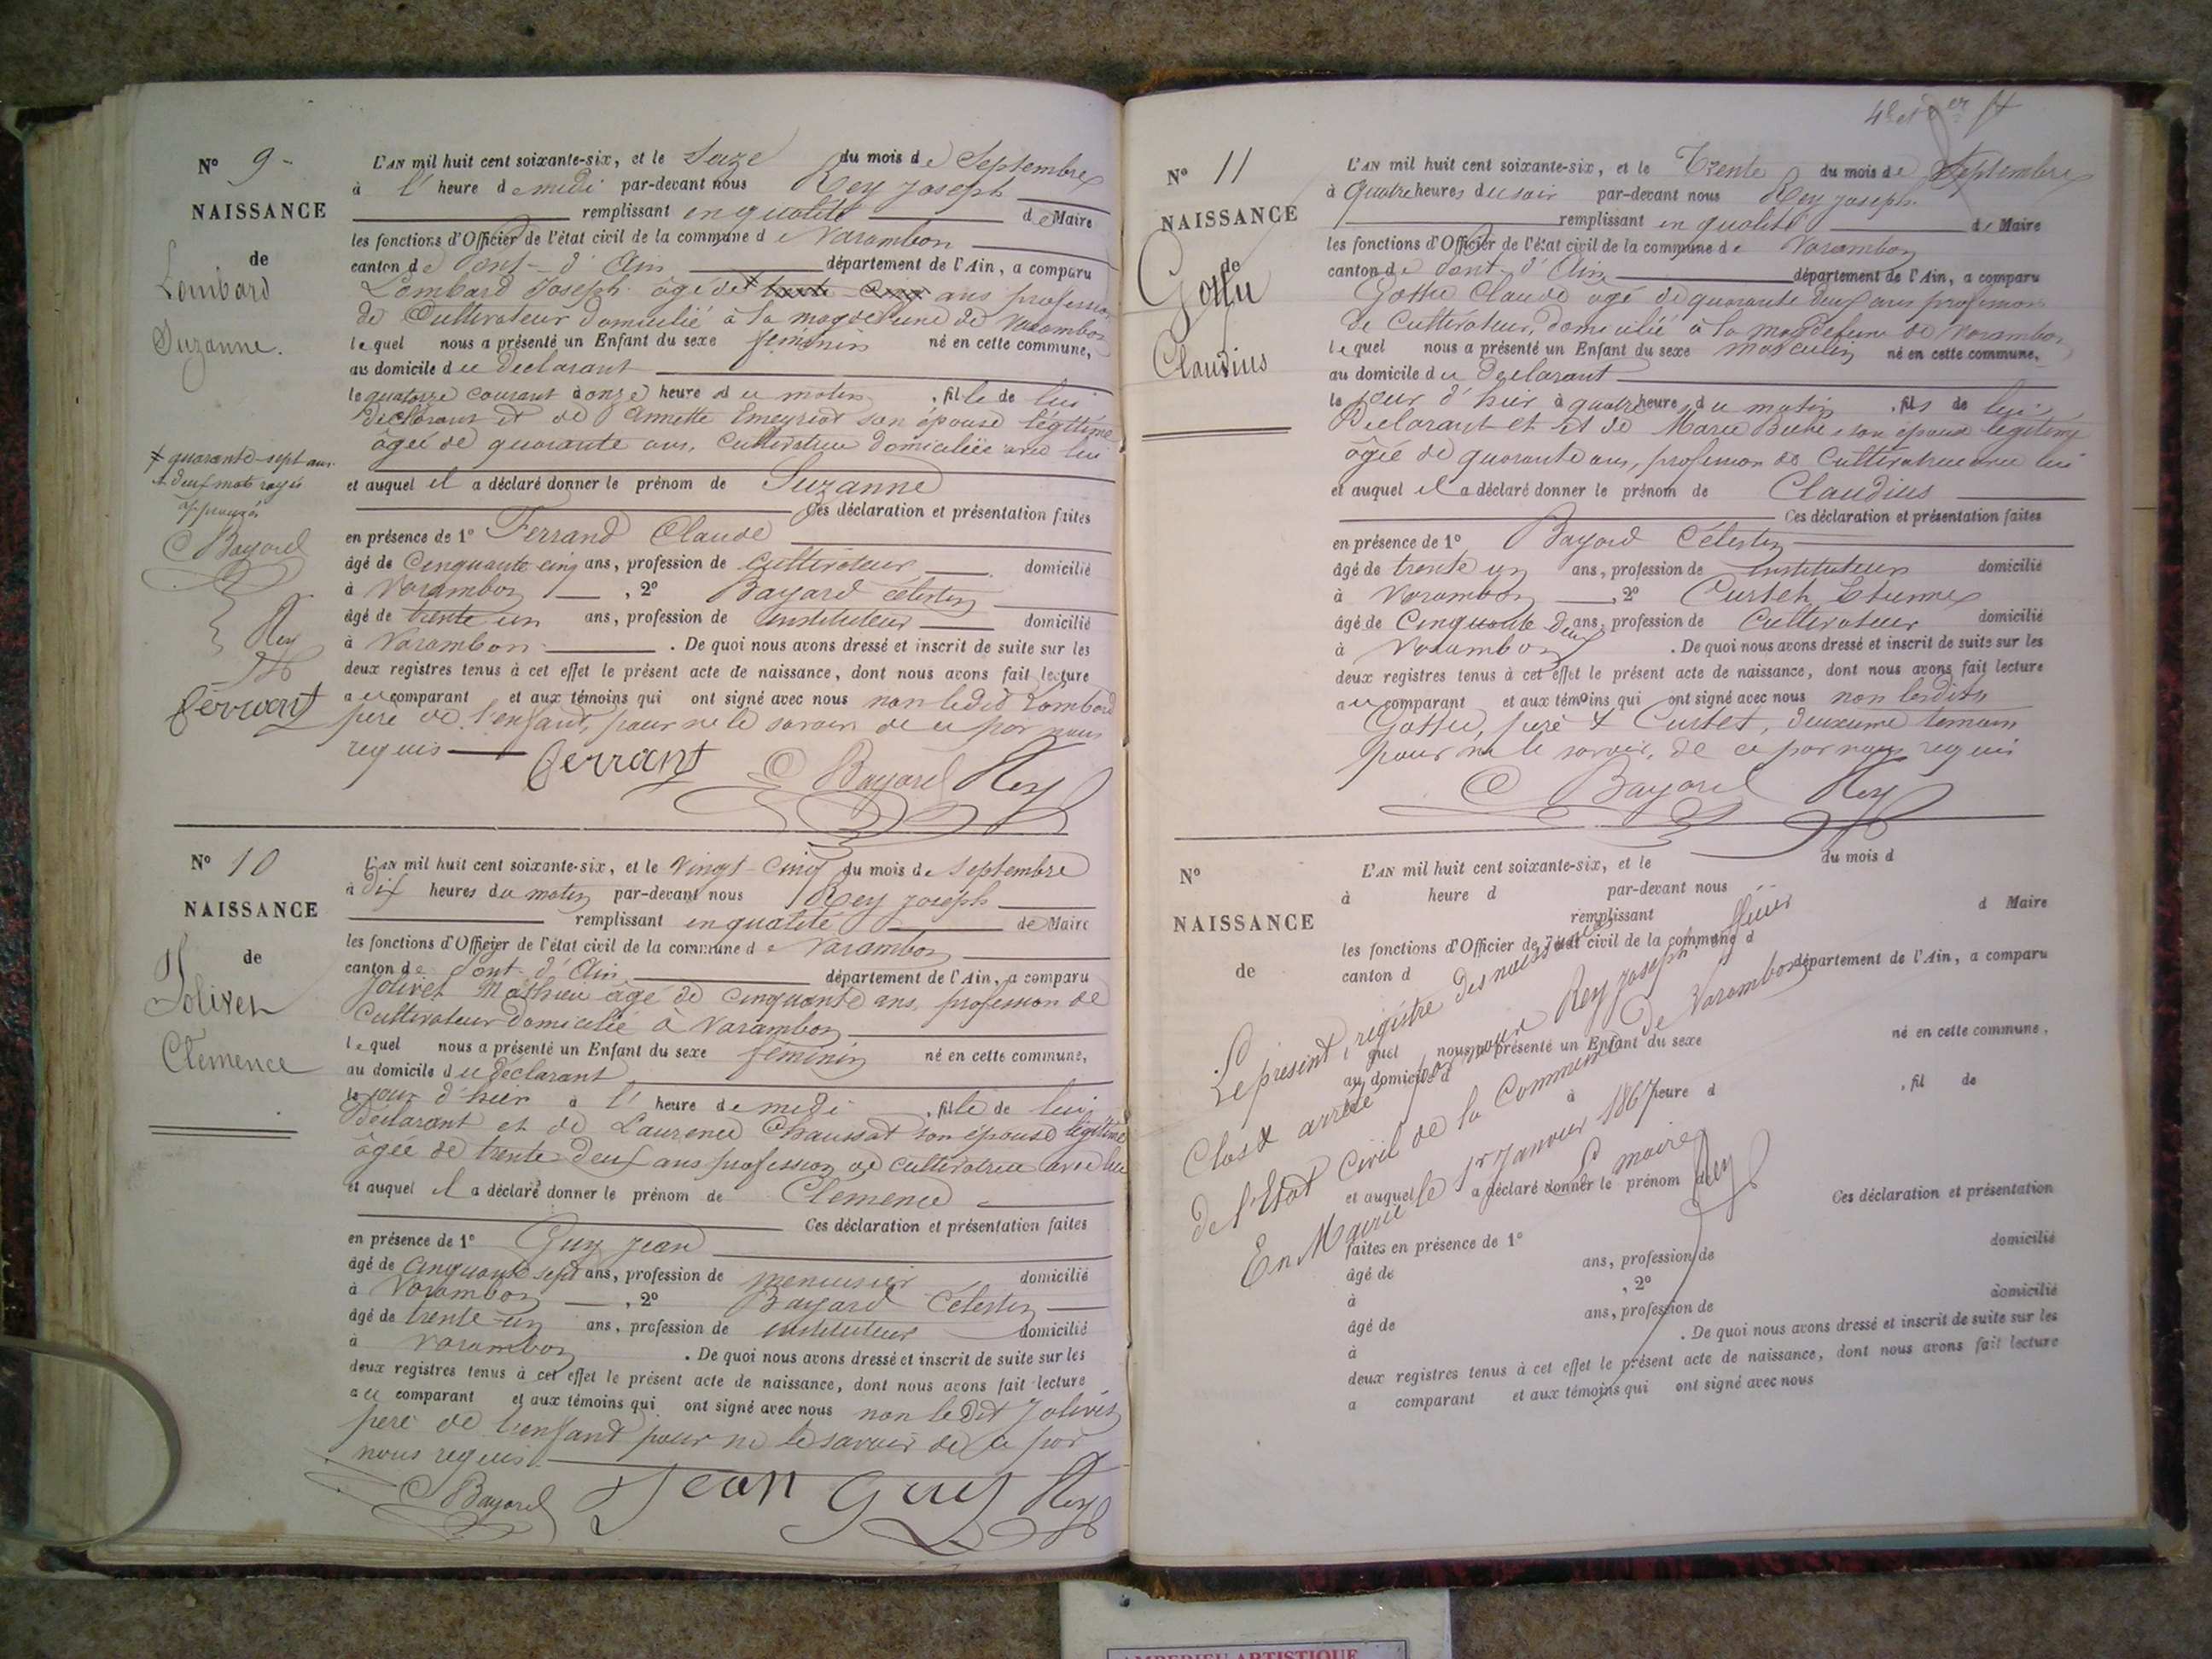 N° 9 -
NAISSANCE
de
Lombard
Suzanne.
L'AN mil huit cent soixante-six, et le Seize du mois de Septembre
à l' heure de midi par-devant nous Rey Joseph
remplissant en qualité de Maire
les fonctions d'Officier de l'état civil de la commune de Varambon
canton de Pont-d'Ain département de l'Ain, a comparu
Lombard Joseph âgé de + trente cinq ans profession
de Cultivateur domicilié à la magdeleine de Varambon
lequel nous a présenté un Enfant du sexe féminin né en cette commune,
au domicile du déclarant
le quatorze courant à onze heure du matin, fille de lui
déclarant et de Annette Emeyriat son épouse légitime
âgée de quarante ans, cultivatrice domiciliée avec lui
et auquel il a déclaré donner le prénom de Suzanne
Ces déclaration et présentation faites
en présence de 1° Ferrand Claude
âgé de Cinquante cinq ans, profession de cultivateur domicilié
à Varambon, 2° Bayard célestin
âgé de trente un ans, profession de instituteur domicilié
à Varambon. De quoi nous avons dressé et inscrit de suite sur les
deux registres tenus à cet effet le présent acte de naissance, dont nous avons fait lecture
au comparant et aux témoins qui ont signé avec nous non ledit Lombard
père de l'enfant, pour ne le savoir de ce par nous
requis
+ quarante-sept ans
& deux mots rayés
approuvés
C Bayard
Rey
ferrant
ferrant C Bayard Rey
N° 10
NAISSANCE
de
Jolivet
Clémence
L'AN mil huit cent soixante-six, et le vingt-cinq du mois de septembre
à dix heures du matin par-devant nous Rey joseph
remplissant en qualité de Maire
les fonctions d'Officier de l'état civil de la commune de Varambon
canton de Pont-d'Ain département de l'Ain, a comparu
Jolivet Mathieu âgé de cinquante ans, profession de
Cultivateur domicilié à Varambon
lequel nous a présenté un Enfant du sexe féminin né en cette commune,
au domicile du déclarant
le jour d'hier à l' heure de midi, fille de lui
déclarant et de Laurence Chaussat son épouse légitime
âgée de trente-deux ans profession de cultivatrice avec lui
et auquel il a déclaré donner le prénom de Clémence
Ces déclaration et présentation faites
en présence de 1° Guy jean
âgé de cinquante sept ans, profession de menuisier domicilié
à Varambon, 2° Bayard Célestin
âgé de trente-un ans, profession de instituteur domicilié
à Varambon. De quoi nous avons dressé et inscrit de suite sur les
deux registres tenus à cet effet le présent acte de naissance, dont nous avons fait lecture
au comparant et aux témoins qui ont signé avec nous non ledit Jolivet
père de l'enfant pour ne le savoir de ce par
nous requis
C Bayard Jean Guy Rey
N° 11
NAISSANCE
de
Gottu
Claudius
L'AN mil huit cent soixante-six, et le Trente du mois de Septembre
à quatre heures du soir par-devant nous Rey joseph
remplissant en qualité de Maire
les fonctions d'Officier de l'état civil de la commune de Varambon
canton de Pont-d'Ain département de l'Ain, a comparu
Gottu Claude âgé de quarante deux ans profession
de cultivateur, domicilié à la magdeleine de Varambon
lequel nous a présenté un Enfant du sexe masculin né en cette commune,
au domicile du déclarant
le jour d'hier à quatre heures du matin, fils de lui
Déclarant et de Marie son épouse légitime
âgée de quarante ans, profession de cultivatrice avec lui
et auquel il a déclaré donner le prénom de Claudius
Ces déclaration et présentation faites
en présence de 1° Bayard Célestin
âgé de trente un ans, profession de instituteur domicilié
à Varambon, 2° Curtet Etienne
âgé de Cinquante deux ans, profession de Cultivateur domicilié
à Varambon. De quoi nous avons dressé et inscrit de suite sur les
deux registres tenus à cet effet le présent acte de naissance, dont nous avons fait lecture
au comparant et aux témoins qui ont signé avec nous non lesdits
Gottu, père & Curtet, deuxième témoin
pour ne le savoir, de ce par nous requis
C Bayard Rey
N°
NAISSANCE
de
L'AN mil huit cent soixante-six, et le du mois d
à heure d par-devant nous
remplissant d Maire
les fonctions d'Officier de l'état civil de la commune d
canton d département de l'Ain, a comparu
quel nous a présenté un Enfant du sexe né en cette commune,
au domicile d
à heure d, fil de
et auquel a déclaré donner le prénom de
Ces déclaration et présentation
faites en présence de 1°
âgé de ans, profession de domicilié
à, 2°
âgé de ans, profession de domicilié
à. De quoi nous avons dressé et inscrit de suite sur les
deux registres tenus à cet effet le présent acte de naissance, dont nous avons fait lecture
a comparant et aux témoins qui ont signé avec nous
Le présent régistre des naissances
Clos & arrêté par nous Rey joseph officier
de l'Etat Civil de la Commune de Varambon
En Mairie le 1er janvier 1867
Le maire
Rey
AMBERIEU ARTISTIQUE